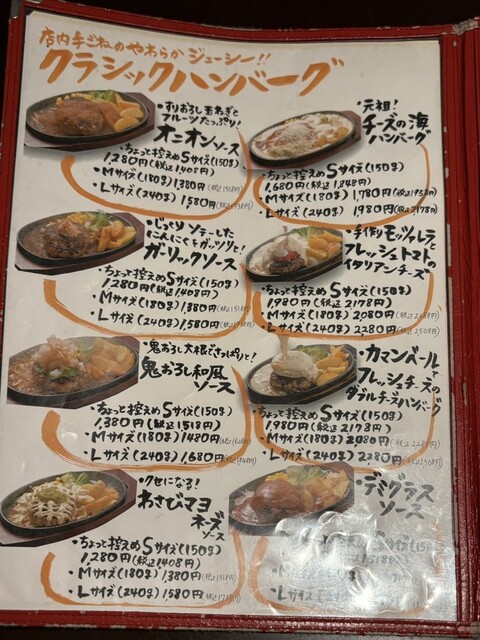 店内手ごねのやわらかジューシー!!
クラシックハンバーグ
・すりおろし玉ねぎと
フルーツたっぷり!
オニオンソース
・ちょっと控えめ Sサイズ(150g)
1,280円(税込1,408円)
・Mサイズ(180g)1,380円(税込1518円)
・Lサイズ(240g)1,580円(税込1738円)
・じっくりソテーした
にんにくをガッツリと!
ガーリックソース
・ちょっと控えめ Sサイズ(150g)
1,280円(税込1,408円)
・Mサイズ(180g)1,380円(税込1518円)
・Lサイズ(240g)1,580円(税込1738円)
・鬼おろし大根でさっぱりと!
鬼おろし和風
ソース
・ちょっと控えめ Sサイズ(150g)
1,380円(税込1,518円)
・Mサイズ(180g)1480円
・Lサイズ(240g)1,680円
・クセになる!
わさびマヨ
ネーズ
ソース
・ちょっと控えめ Sサイズ(150g)
1,280円(税込1408円)
・Mサイズ(180g)1380円(税込1518円)
・Lサイズ(240g)1580円
・元祖!
チーズの海
ハンバーグ
・ちょっと控えめ Sサイズ(150g)
1,680円(税込1,848円)
・Mサイズ(180g)1,780円(税込1958円)
・Lサイズ(240g)1980円(税込2178円)
・手作りモッツァレラと
フレッシュトマトの
イタリアンチーズ
・ちょっと控えめ Sサイズ(150g)
1,980円(税込2178円)
・Mサイズ(180g)2,080円(税込2288円)
・Lサイズ(240g)2,280円(税込2508円)
・カマンベールと
フレッシュチーズの
ダブルチーズハンバーグ
・ちょっと控えめ Sサイズ(150g)
1,980円(税込2178円)
・Mサイズ(180g)2,080円(税込2288円)
・Lサイズ(240g)2,280円(税込2508円)
・デミグラス
ソース
Sサイズ(150g)
・M
・Lサイズ